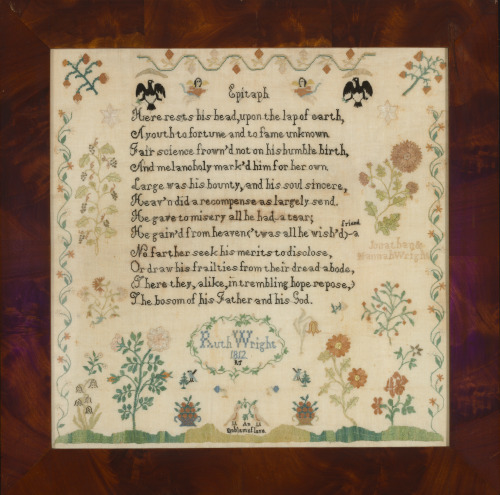 Epitaph
Here rests his head, upon the lap of earth,
A youth to fortune and to fame unknown
Fair science frown'd not on his humble birth,
And melancholy mark'd him for her own.
Large was his bounty, and his soul sincere,
Heav'n did a recompense as largely send.
He gave to misery all he had a tear;
friend
He gain'd from heaven ('twas all he wish'd)-a
No farther seek his merits to disclose,
Or draw his frailties from their dread abode,
(There they, alike, in trembling hope repose,)
The bosom of his Father and his God.
Jonathan &
Hannah Wright
Ruth Wright
1812